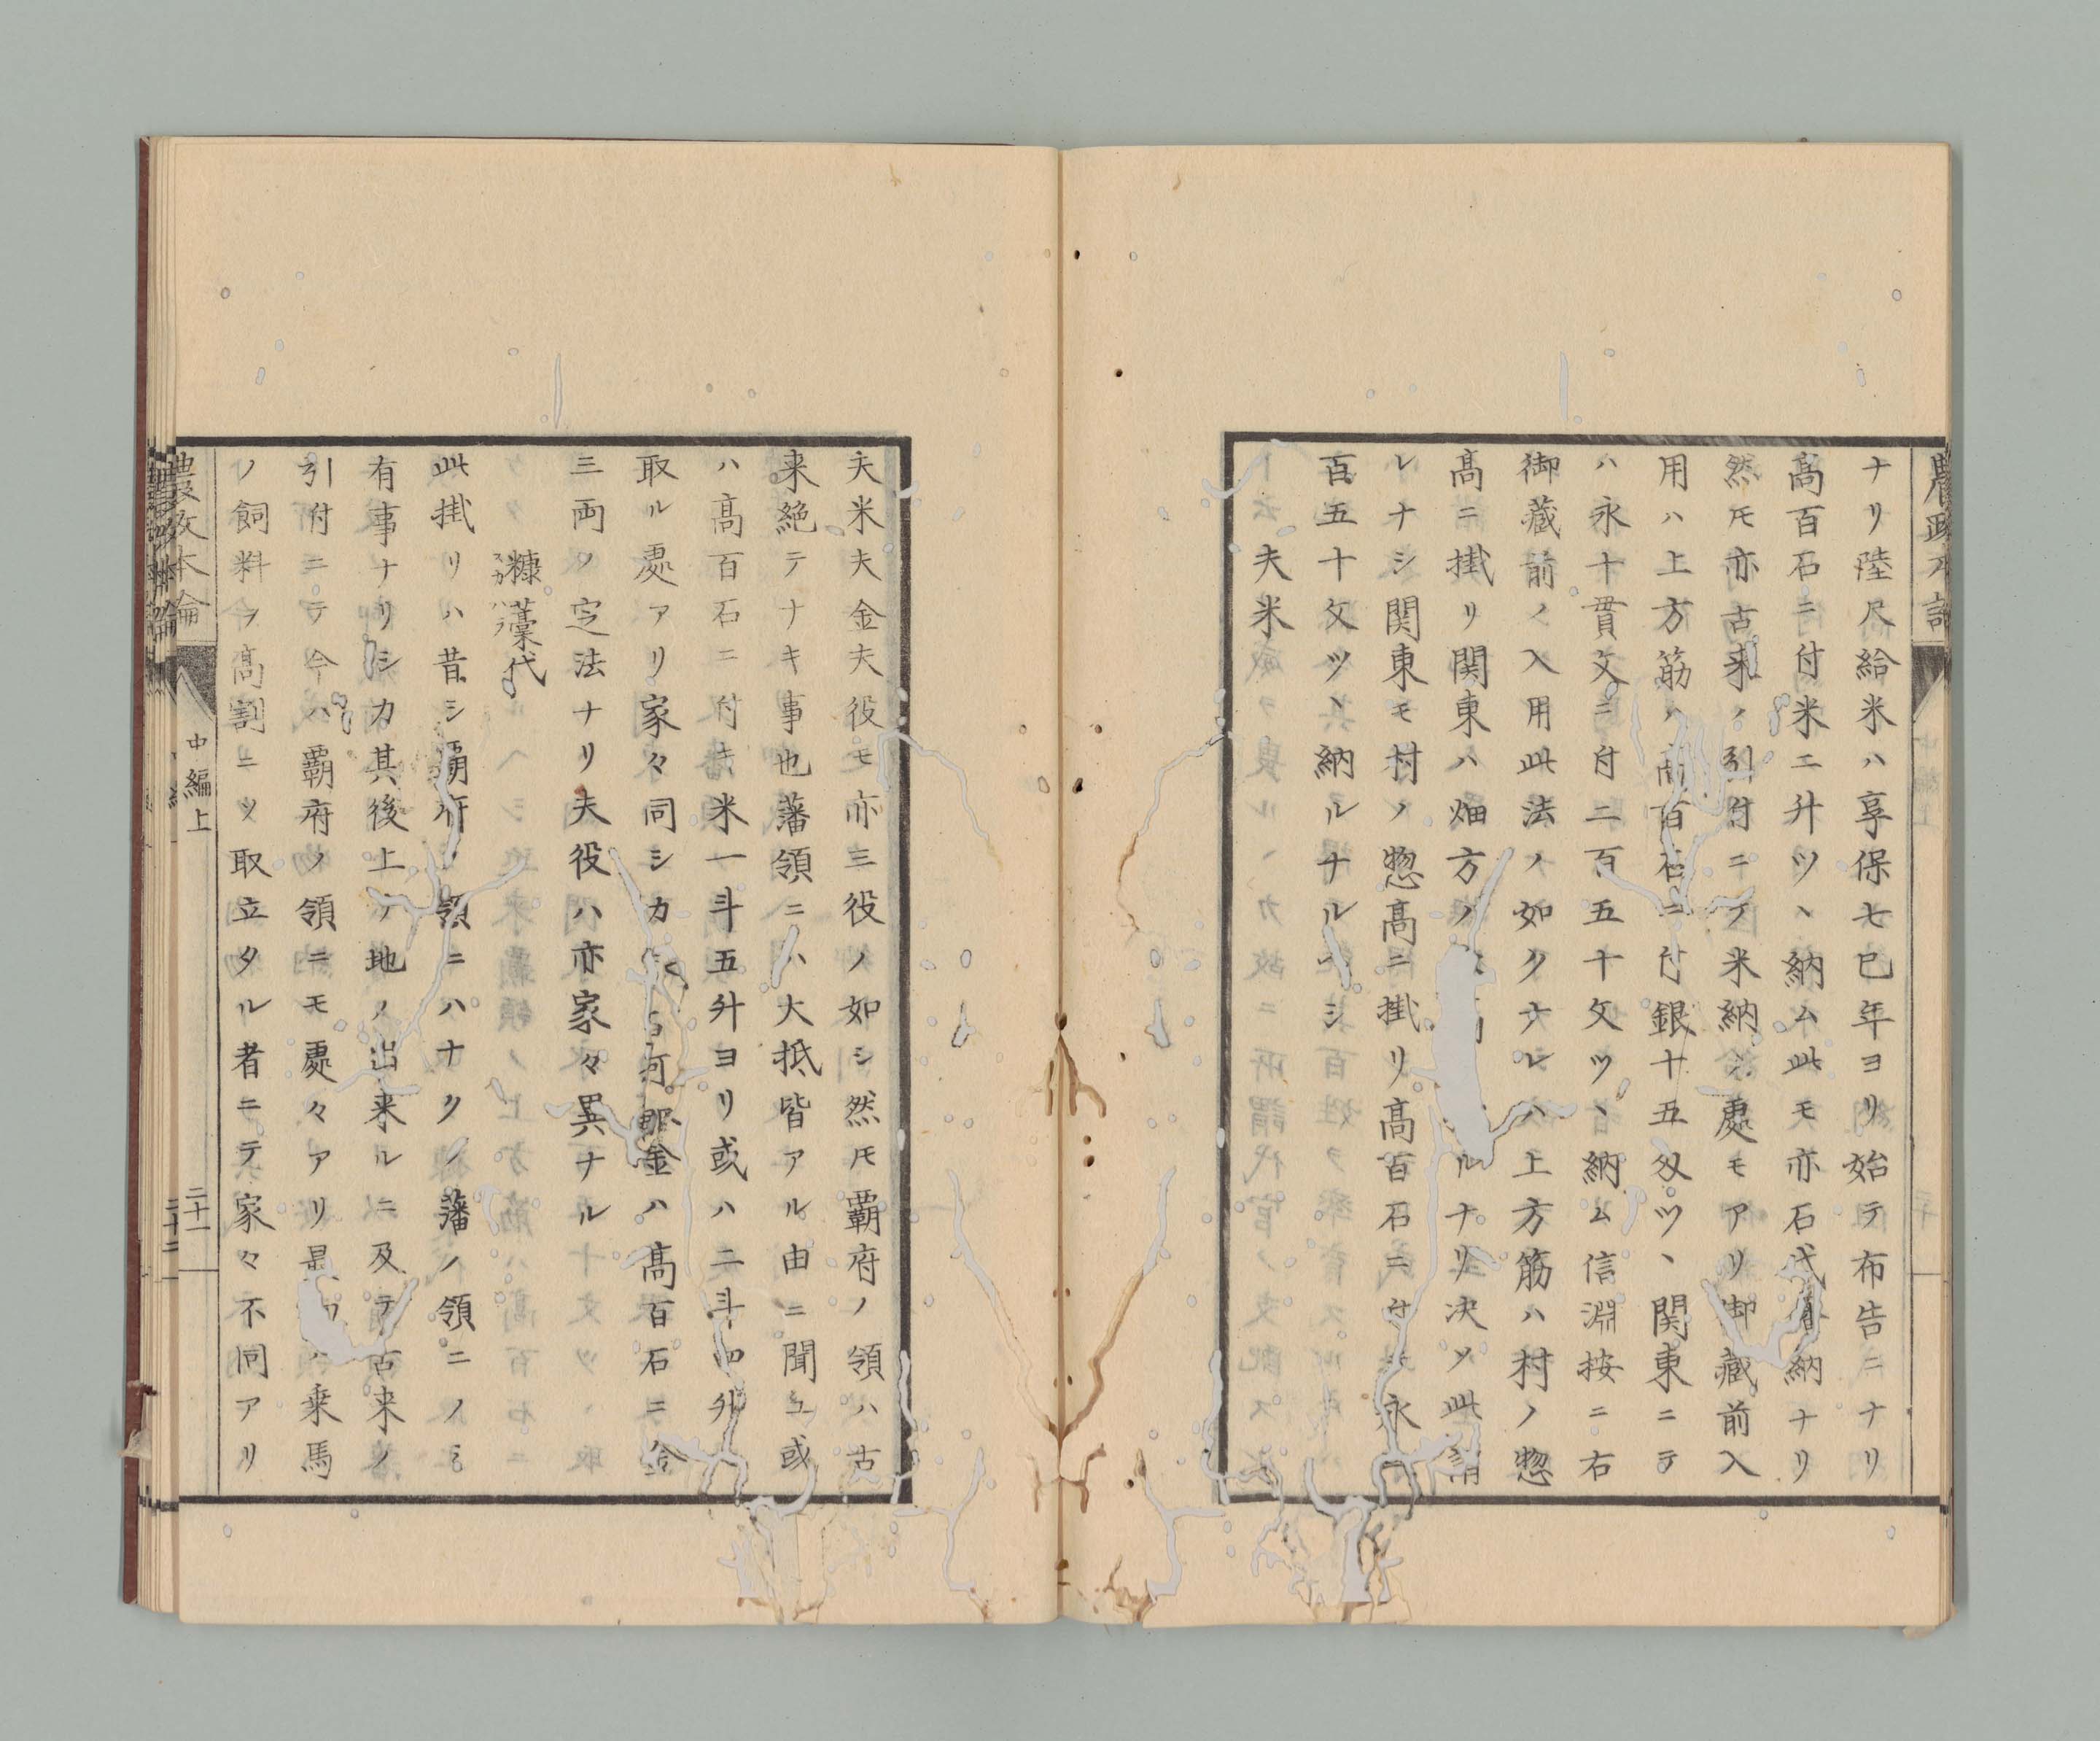 ナリ陸尺給米ハ享保七巳年ヨリ始テ布告ニナリ
高百石ニ付米二升ツヽ納ム此モ亦石代納ナリ
然モ亦古来ノ引付ニテ米納ノ處モアリ御蔵前入
用ハ上方筋ハ高百石ニ付銀十五匁ツヽ関東ニテ
ハ永十貫文ニ付二百五十文ツヽ納ム信淵按ニ右
御蔵前ノ入用此法ノ如クナレハ上方筋ハ村ノ惣
高ニ掛リ関東ハ畑方ノ ルナリ決ソ此謂
レナシ関東モ村ノ惣高ニ掛リ高百石ニ付 永
百五十文ツヽ納ルナルヘシ
夫米
夫米夫金夫役モ亦三役ノ如シ然モ覇府ノ領ハ古
来絶テナキ事也藩領ニハ大抵皆アル由ニ聞ユ或
ハ高百石ニ付キ米一斗五升ヨリ或ハ二斗四升
取ル處アリ家々同シカラ 金ハ高百石ニ金
三両ノ定法ナリ夫役ハ亦家々異ナル
糠藁代
此掛リハ昔シ覇府ノ領ニハナク 藩ノ領ニノミ
有事ナリシカ其後上ケ地ノ出来ルニ及テ古来ノ
引付ニテ今ハ覇府ノ領ニモ處々アリ是 ハ乗馬
ノ飼料ヲ高割ニツ取立タル者ニテ家々不同アリ
農政本論
中編上
二十一